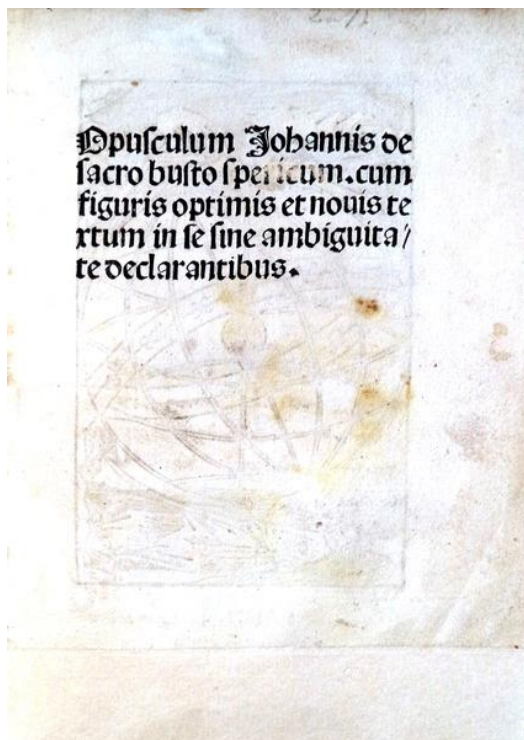 Opuſculum Johannis de
ſacro buſto ſpericum. cum
figuris optimis et nouis te
xtum in ſe ſine ambiguita/
te declarantibus.